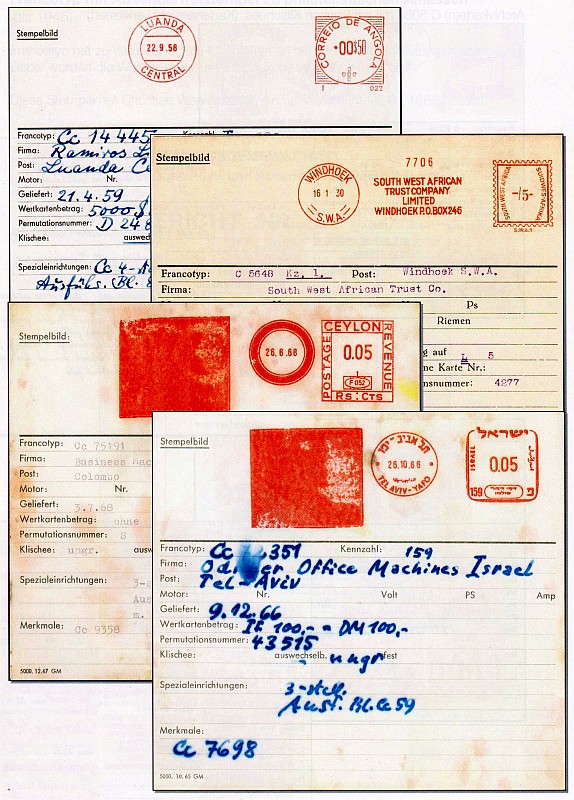 Stempelbild
LUANDA
22.9.58
CENTRAL
CORREIO DE ANGOLA
00$50
1 022
Francotyp: Cc 14445
Firma: Ramiros L
Post: Luanda
Motor: Nr.
Geliefert: 21.4.59
Wertkartenbetrag: 5000 $
Permutationsnummer: D 248
Klischee: auswech
Spezialeinrichtungen: Cc 4-
Ausführ. Bl.
Stempelbild
WINDHOEK
16 1 30
S.W.A.
7706
SOUTH WEST AFRICAN
TRUST COMPANY
LIMITED
WINDHOEK P.O.BOX 246
SOUTH WEST AFRICA
SUIDWES-AFRIKA
-/5-
S.W.A.1
Francotyp: C 5648 Kz. 1. Post: Windhoek S.W.A.
Firma: South West African Trust Co.
Ps
Riemen
g auf L 5
ne Karte Nr.:
nsnummer: 4277
Stempelbild:
26.6.68
CEYLON
POSTAGE
REVENUE
0.05
1
F 052
Rs: Cts
Francotyp: Cc 75191
Firma: Business Mac
Post: Colombo
Motor: Nr.
Geliefert: 3.7.68
Wertkartenbetrag: ohne
Permutationsnummer: 8
Klischee: ungr. ausw
Spezialeinrichtungen: 3-s
Aus
m.
Merkmale: Cc 9358
5000. 12.67 GM
Stempelbild
תל אביב - יפו
26.10.66
TEL AVIV - YAFO
ישראל
ISRAEL
0.05
159
Francotyp: Cc 351 Kennzahl: 159
Firma: Office Machines Israel
Post: Tel-Aviv
Motor: Nr. Volt PS Amp
Geliefert: 9.12.66
Wertkartenbetrag: I£ 100,- = DM 100,-
Permutationsnummer: 43515
Klischee: auswechselb. - ungr fest
Spezialeinrichtungen: 3-stell.
Ausf. Bl. Cc 59
Merkmale:
Cc 7698
5000. 10.65 GM